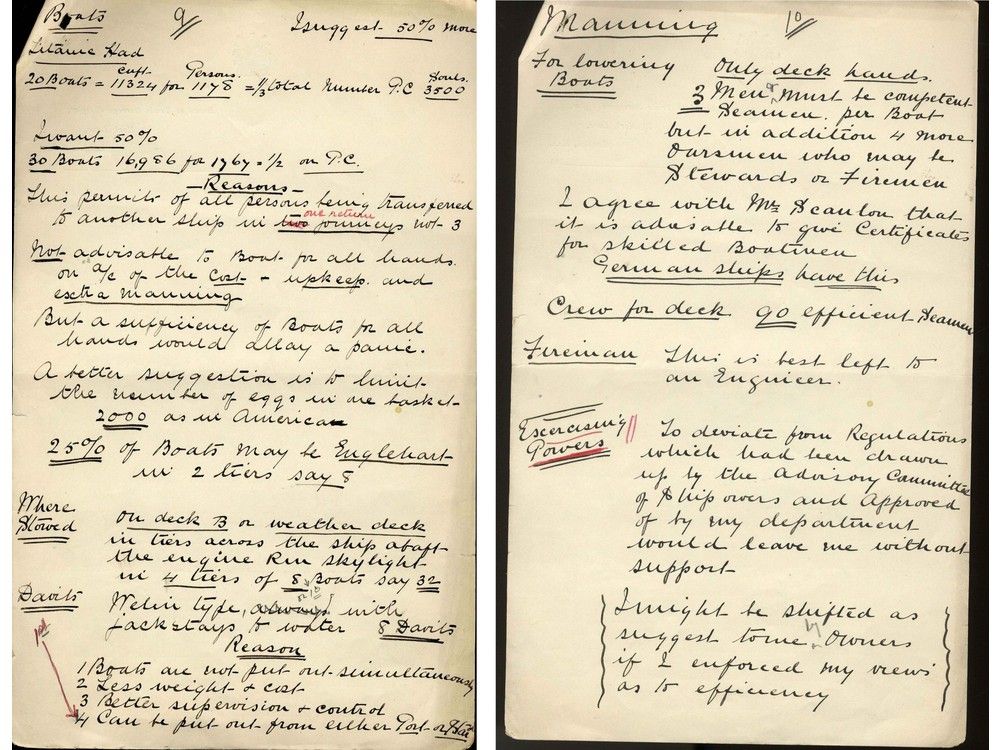 Boats 9/
I suggest 50% more
Titanic Had
20 Boats = 11324 cuft for 1178 Persons = 1/3 total Number P.C 3500 Souls
I want 50%
30 Boats 16,986 for 1767 = 1/2 on P.C.
- Reasons -
This permits of all persons being transferred
to another ship in two journeys one return not 3
Not advisable to Boat for all hands
on a/c of the cost + upkeep and
extra manning
But a sufficiency of Boats for all
hands would allay a panic.
A better suggestion is to limit
the number of eggs in one basket
2000 as in American
25% of Boats may be Englehart
in 2 tiers say 8
Where
Stowed
on deck B or weather deck
in tiers across the ship abaft
the engine Rm skylight
in 4 tiers of 8 or 10 Boats say 32
Davits
Welin type, always with
jackstays to water 8 Davits
Reason
1 Boats are not put out simultaneously
2 Less weight + cost
3 Better supervision + control
1st
4 Can be put out from either Port or Star
Manning 10/
For lowering
Boats
Only deck hands.
2 Men must be competent
Seamen per Boat
but in addition 4 more
Oarsmen who may be
Stewards or Firemen
I agree with Mr Scanlon that
it is advisable to give Certificates
for skilled Boatmen
German ships have this
Crew for deck 90 efficient Seamen
Fireman
This is best left to
an Engineer.
Excercising
Powers
To deviate from Regulations
which had been drawn
up by the Advisory Committee
of Shipowers and Approved
of by my department
would leave me without
support
I might be shifted as
suggest to me by Owners
if I enforced my views
as to efficiency